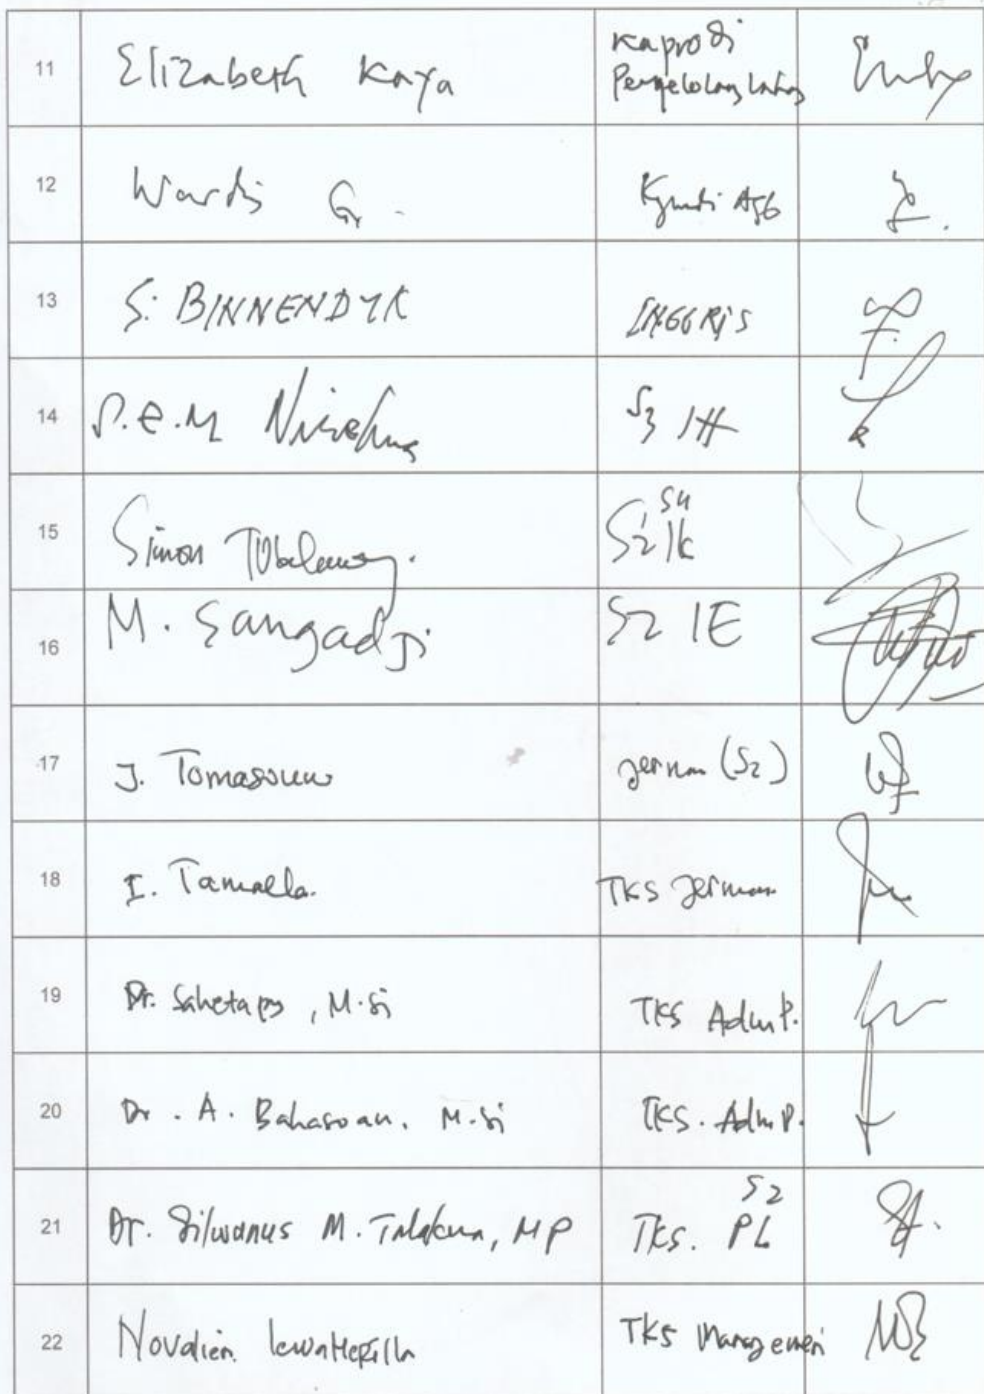 11 Elizabeth Kaya Kaprodi
Pengelolaan Lahan
12 Wardis G.
13 S. BINNENDYK INGGRIS
14 P.E.M S3 IH
15 Simon S2 IK
16 M. Sangadji S2 IE
17 J. Tomasouw Jerman (S2)
18 I. Tamaela. TKS Jerman
19 Dr. Sahetapy, M.Si TKS Adm P.
20 Dr. A. Bahasoan. M.Si TKS. Adm P.
S2
21 Dr. Silwanus M. Talakua, MP TKS. PL
22 Novalien Lewaherilla TKS Managemen